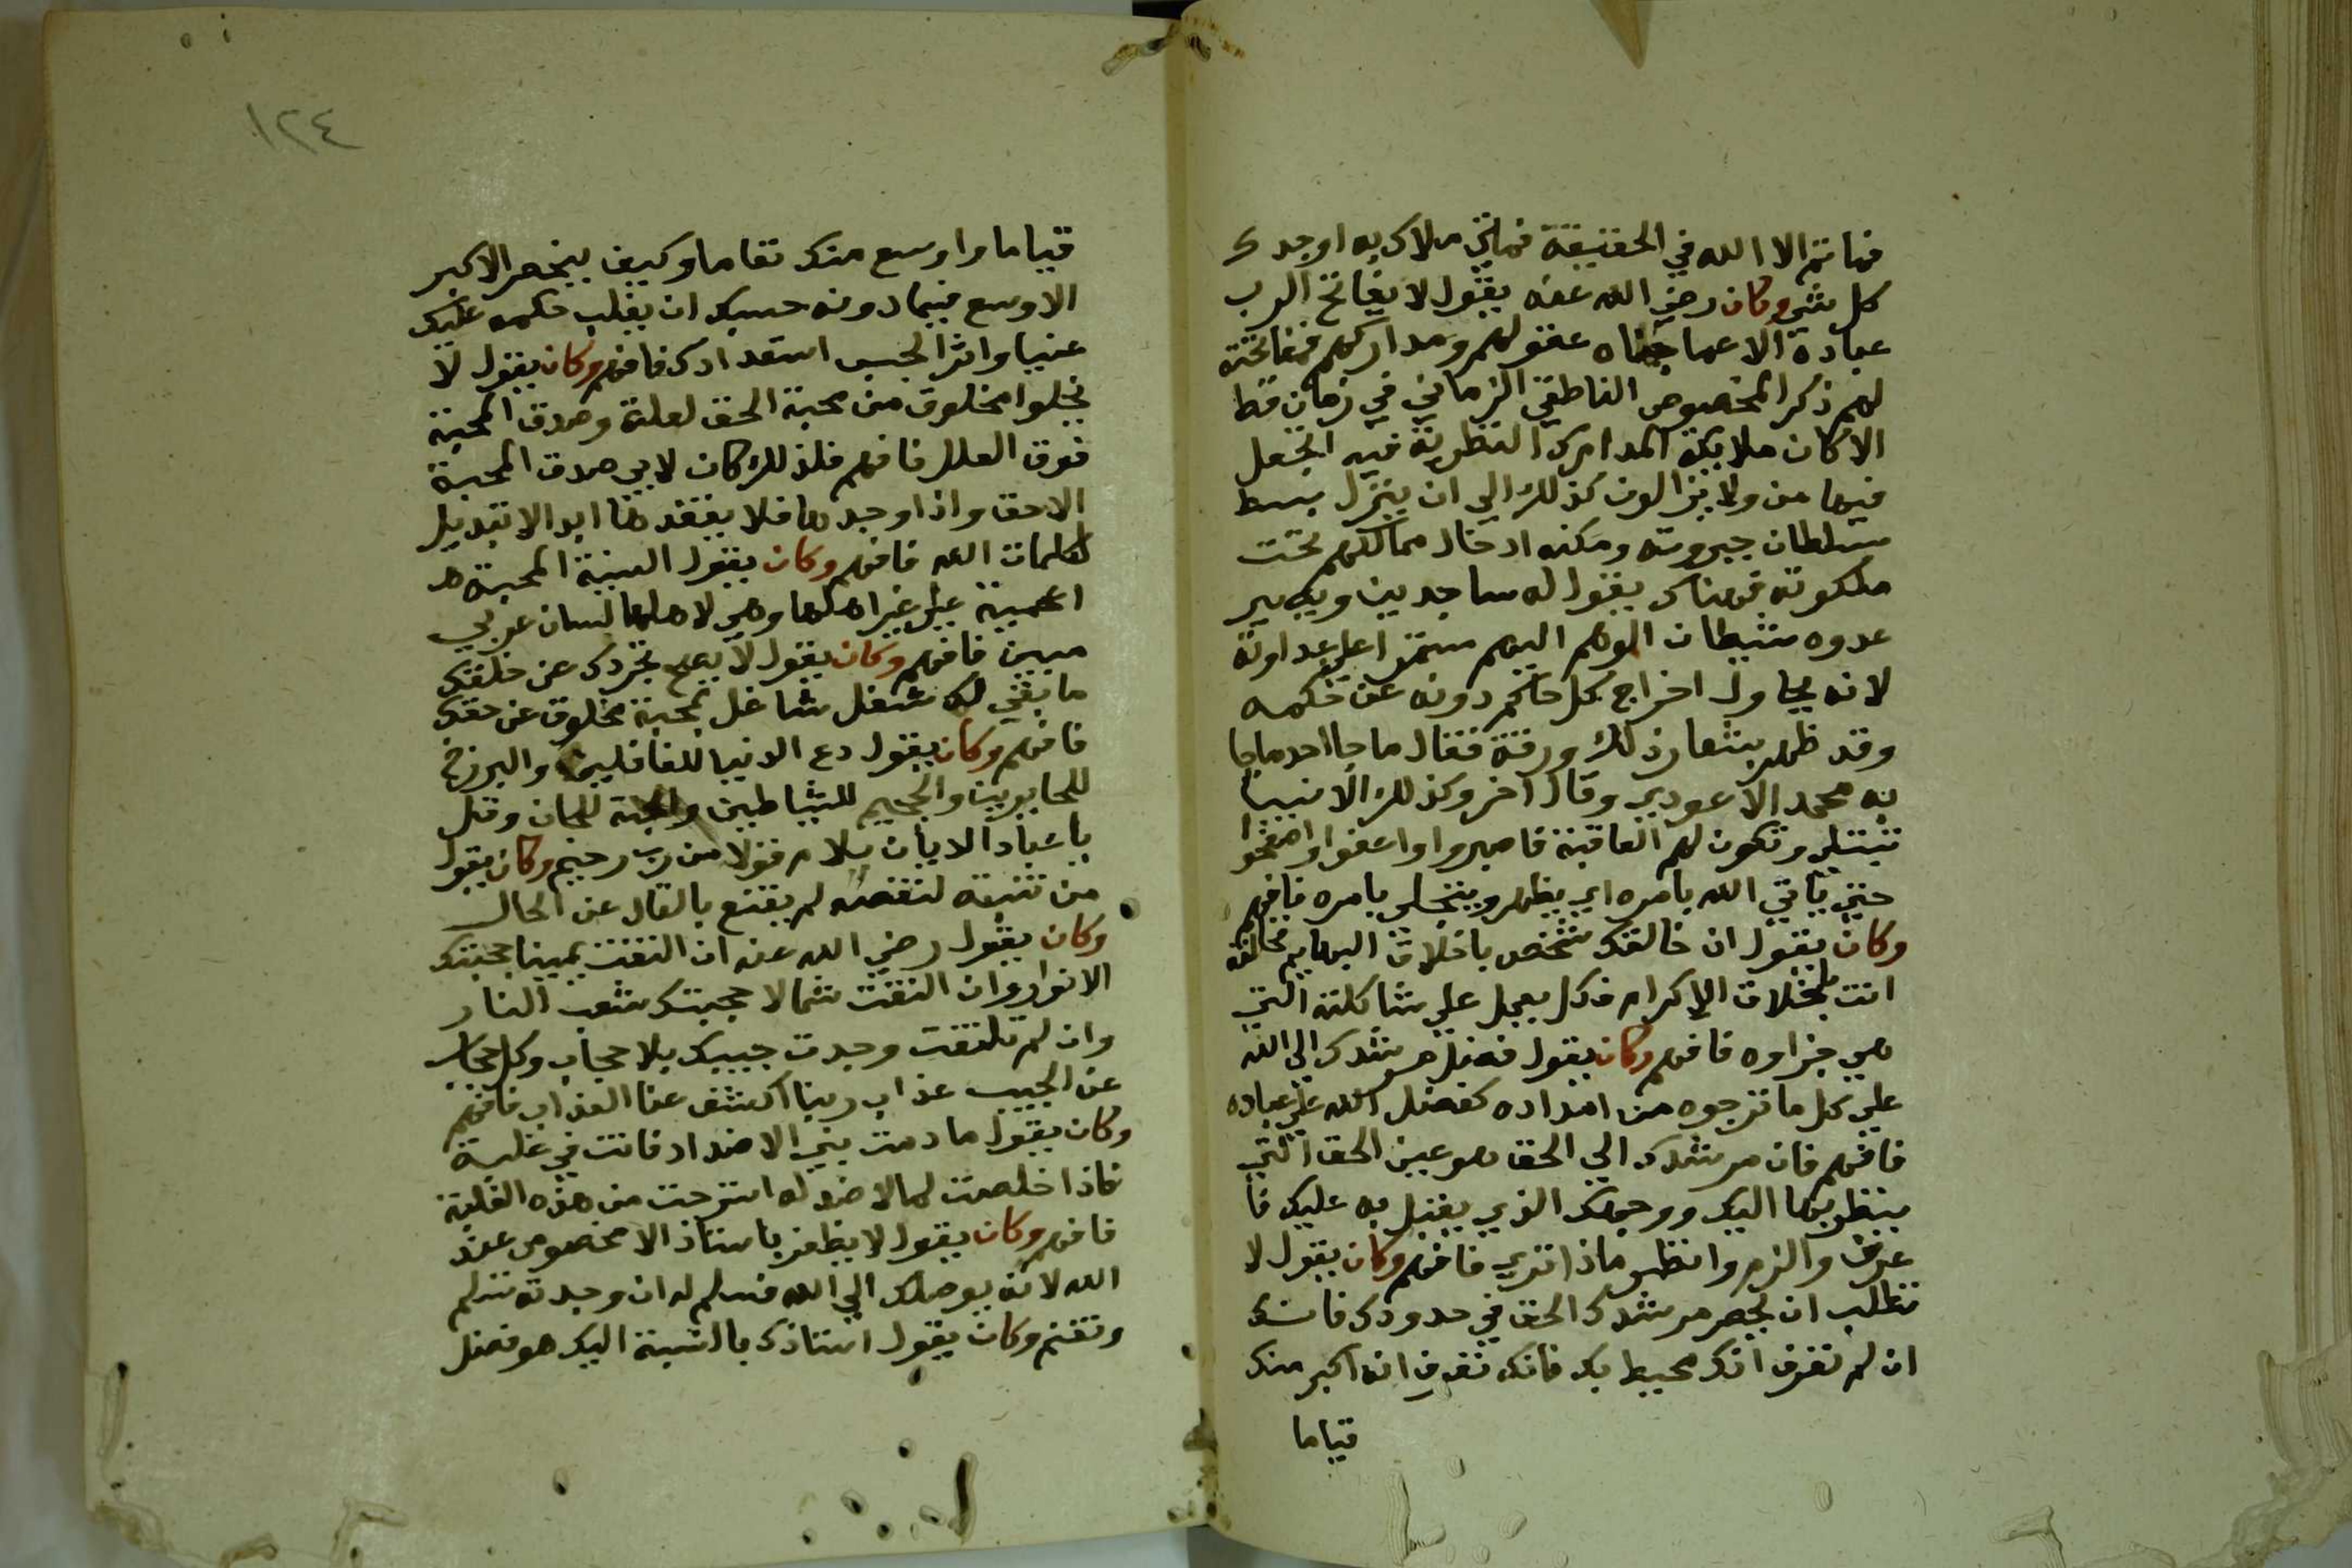 فما ثم الا الله في الحقيقة فما ثم ملاك به اوجدك
كل شي وكان رضي الله عنه يقول لا يفاتح الرب
عباده الا عما عقولهم ومداركهم فمفاتحته
لهم ذكر المخصوص الناطقي الزماني في زمان قط
الا كان ملايكة المدارك النظرية فيه اتجعل
فيها من ولا يزالون كذلك الي ان ينزل ببسط
سلطان جبروته ومكنه ادخال ممالكهم تحت
ملكوته فهناك يقعوا له ساجدين ويصير
عدوه شيطان الوهم البهم مستمرا علي عداوته
لانه يحاول اخراج كل حاكم دونه عن حكمه
وقد ظهر بشعار ذلك ورقة فقال ما جا احد ما جا
به محمد الا عودي وقال اخر وكذلك الانبيا
تبتلي وتكون لهم العاقبة فاصبروا واعفوا واصفحوا
حتي ياتي الله بامره اي يظهر ويتجلي بامره فافهم
وكان يقول ان خالقك شخص باخلاق البهايم فخالقه
انت بخلاق الاكرام فكل يعمل علي شاكلته التي
هي جزاوه فافهم وكان يقول فضل مرشدك الي الله
علي كل ما ترجوه من امداده كفضل الله علي عباده
فافهم فان مرشدك الي الحق هو عين الحق التي
ينظر بها اليك ووجهك الذي يقبل به عليك فا
عرف والزم وانظر ماذا تري فافهم وكان يقول لا
تطلب ان تحصر مرشدك الحق في حدودك فانك
ان لم تعرف انك محيط بك فانك تعرف انه اكبر منك
قياما
١٢٤
قياما واوسع منك مقاما وكيف ينحصر الاكبر
الاوسع فيما دونه حسبك ان يغلب حكمه عليك
عنيا واثر الحس استعدادك فافهم وكان يقول لا
تخلوا مخلوق من محبة الحق لعلة وصدق المحبة
فوق العلل فافهم فلذلك كان لا يي صدق المحبة
الا حق واذا وجدها فلا يفقدها ابدا لا تبديل
لكلمات الله فافهم وكان يقول السنة المحبة هـ
اعجمية علي غير اهلها وهي لاهلها لسان عربي
مبين فافهم وكان يقول لا يصح تجردك عن خلقك
ما بقي لك شغل شاغل بمحبة مخلوق عن حقك
فافهم وكان يقول دع الدنيا للغافلين والبرزخ
للحايرين والجحيم للشياطين والجنة للجان وقل
يا عباد الايمان سلام قولا من رب رحيم وكان يقول
من تنبه لنقصه لم يقنع بالقال عن الحال
وكان يقول رضي الله عنه ان التفت يمينا حجبتك
الانوار وان التفت شمالا حجبتك شعب النار
وان لم تلتفت وجدت حبيبك بلا حجاب وكل حجاب
عن الحبيب عذاب ربنا اكشف عنا العذاب فافهم
وكان يقول ما دمت بين الاضداد فانت في غلبة
فاذا خلصت لما لا ضد له استرحت من هذه الغلبة
فافهم وكان يقول لا يظفر باستاذ الا مخصوص عند
الله لانه يوصلك الي الله فسلم له ان وجدته تسلم
وتغنم وكان يقول استاذك بالنسبة اليك هو فضل